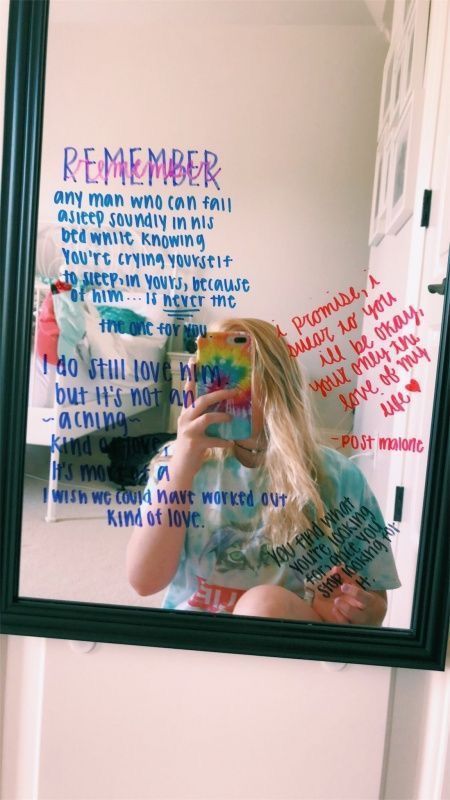 REMEMBER
remember
any man who can fall
asleep soundly in his
bed while knowing
you're crying yourself
to sleep, in yours, because
of him... is never the
the one for you.
I do still love him
but it's not an
~aching~
kind of love.
It's more of a
I wish we could have worked out
kind of love.
i promise, i
swear to you
ill be okay,
your only the
love of my
life ♥
-post malone
You find what
you're looking
for once you
stop looking for
it.